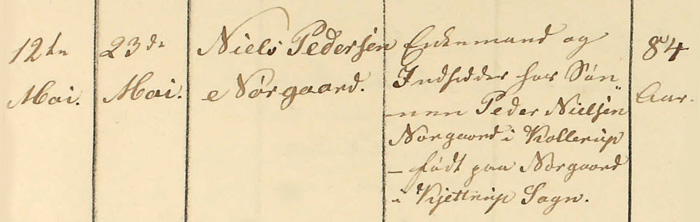 12te
Mai.
23de
Mai.
Niels Pedersen
Nørgaard.
Enkemand og
Indsidder hos Søn-
nen Peder Nielsen
Nørgaard i Kollerup
– født paa Nørgaard
i Kjettrup Sogn.
84
Aar.